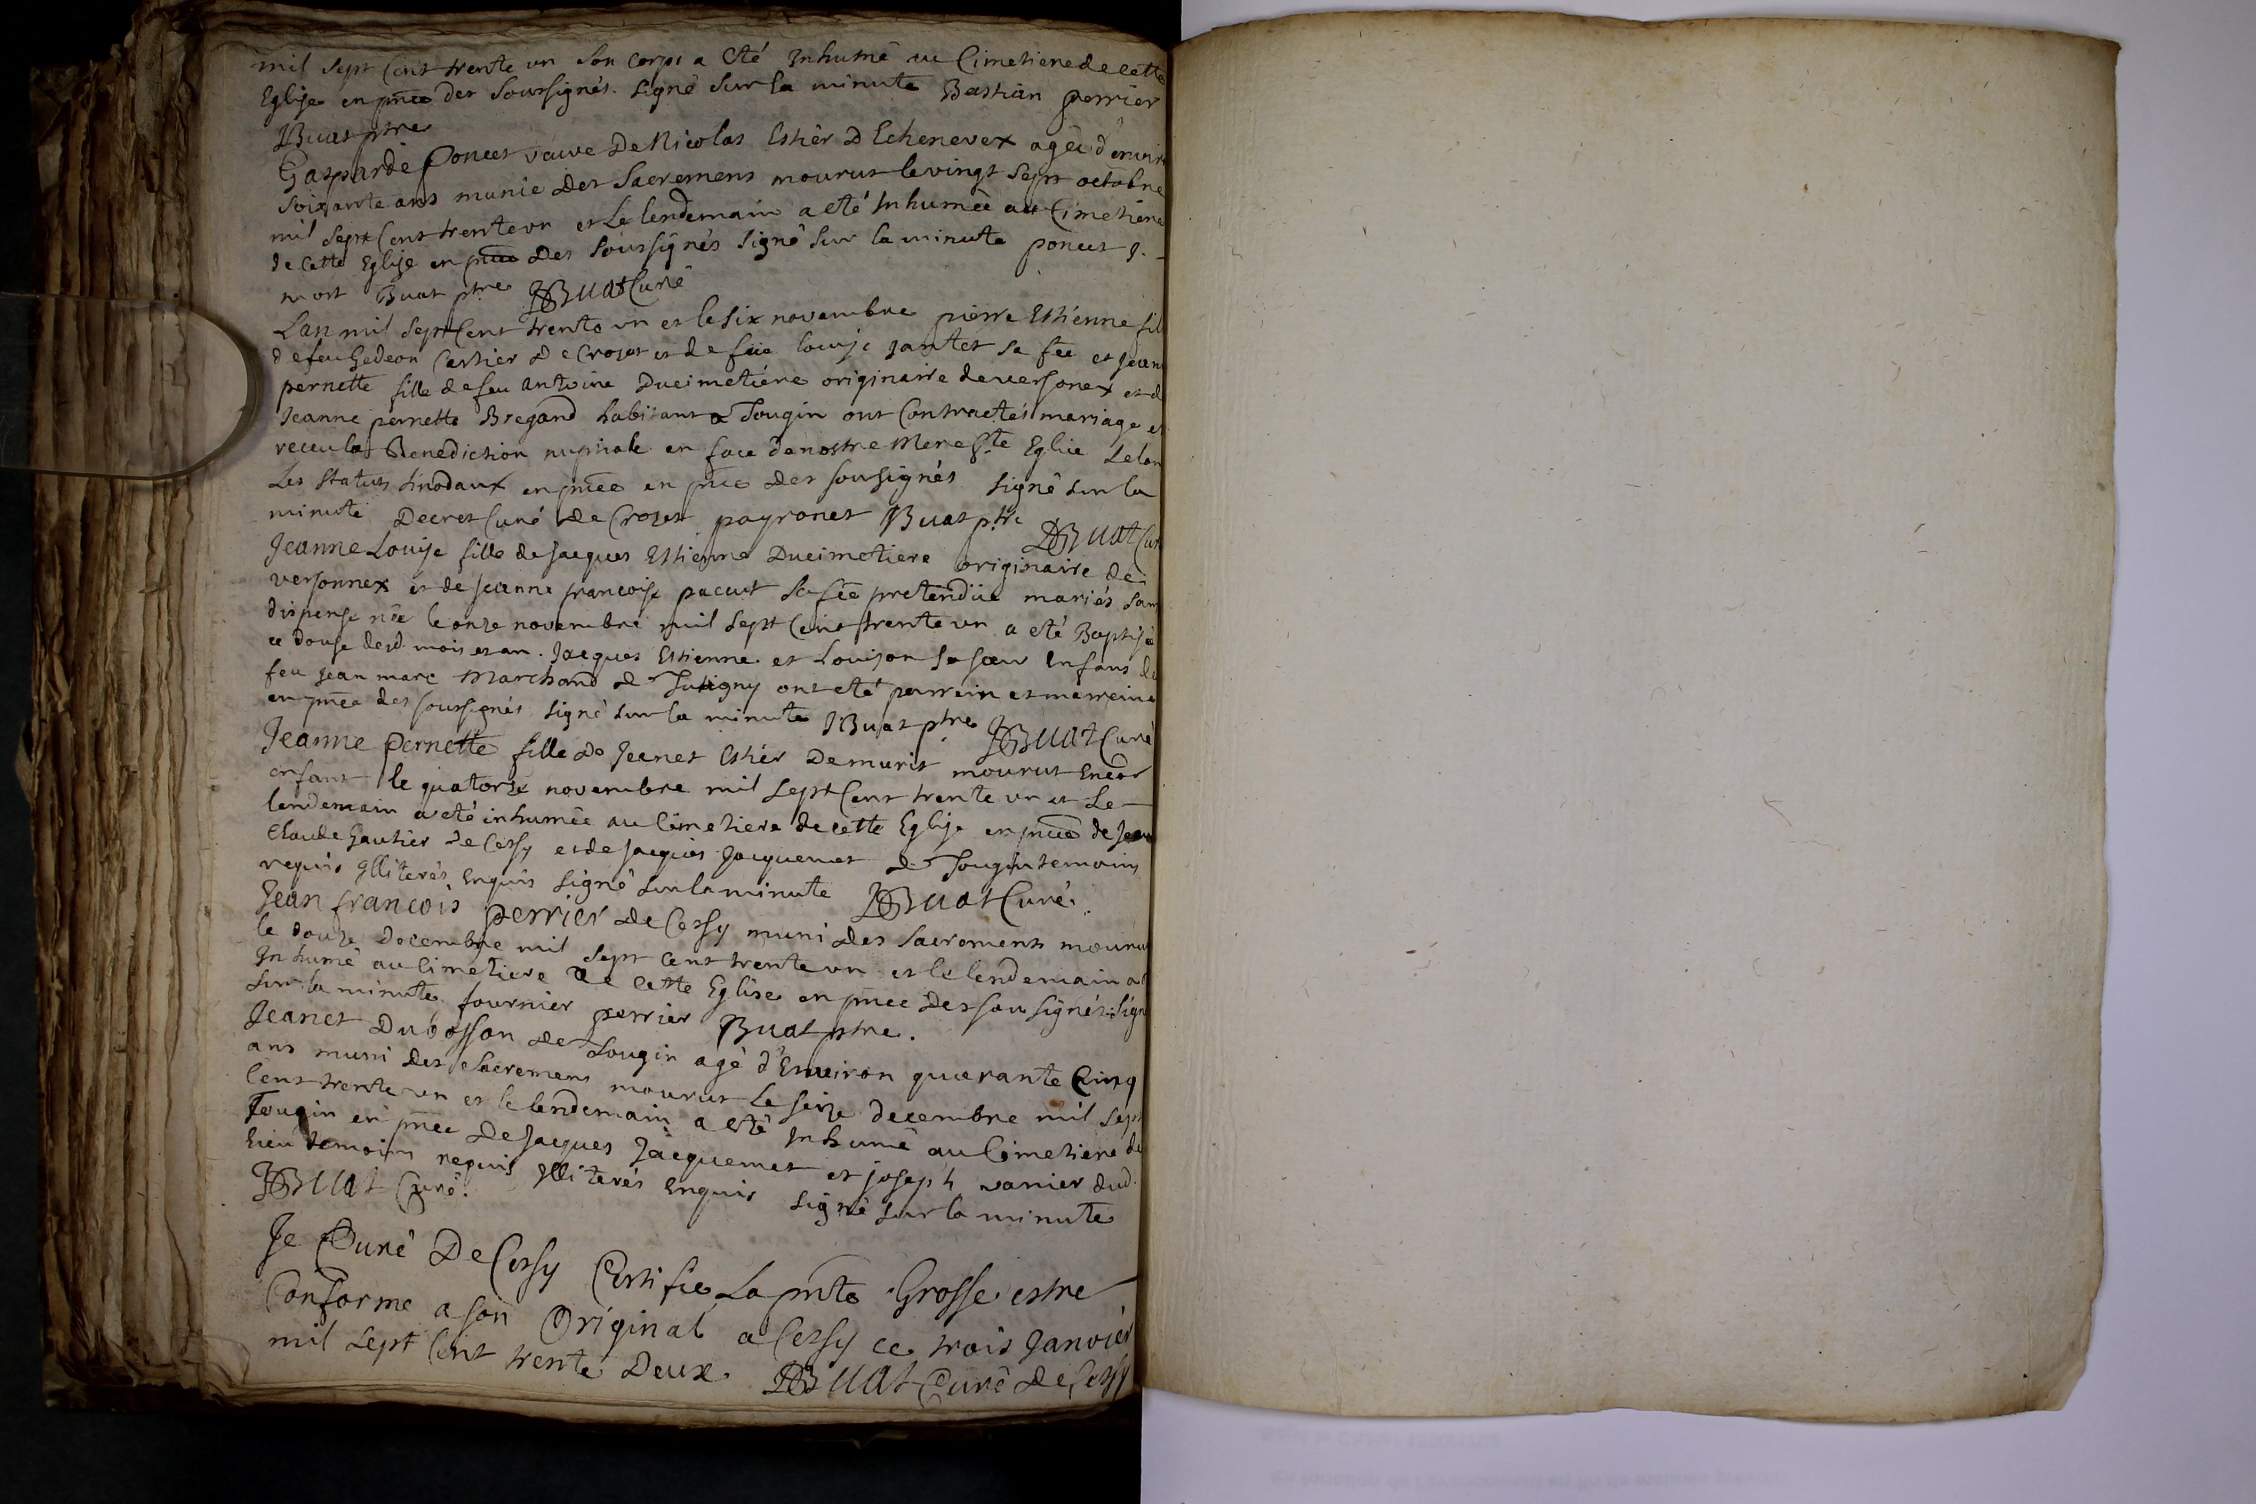 mil sept Cent trente un son corps a eté Inhumé au Cimetiere de cette
Eglise en pñce des soussignés. signé sur la minute Bastian perrier
JBuat ptre
Gasparde Poncet veuve De Nicolas Estier D Echenevex agée d'environ
soixante ans munie des Sacremens mourut le vingt sept octobre
mil sept Cent trente un et Le lendemain a eté Inhumée au Cimetiere
de cette Eglise en pñce des soussignés signé sur la minute poncet J.
mort Buat ptre JBuat Curé
Lan mil sept Cent trente un et le six novembre pierre Estienne fils
de feu Gedeon Cartier de Crozet et de fue louise jantet sa fẽe et Jeanne
pernette fille de feu antoine Ducimetiére originaire de versonex et de
Jeanne pernette Bregand habitant a Tougin ont Contractés mariage et
receu la Benediction nuptiale en face de nostre Mere Ste Eglice Selon
Les Statuts sinodaux en pñce en pñce des sousignés signé sur la
minute Decret Curé de Crozet payronet JBuat ptre JBuat Curé
Jeanne Louise fille de Jacques Estienne Ducimetiere originaire de
versonnex et de Jeanne francoise pacut sa fẽe pretendüe mariés sans
dispense née le onze novembre mil sept Cent trente un a eté Baptisée
ce douse desd. mois et an. Jacques Estienne et Louison sa sœur Enfans de
feu jean marc Marchand de Jutigny ont eté parrein et marreine
en pñce des soussignés signé sur la minute JBuat ptre JBuat Curé
Jeanne Pernette fille de Jeanet Estier Demurit mourut Encor
enfant le quatorze novembre mil sept Cent trente un et Le
lendemain a eté inhumée au Cimetiere de cette Eglise en pñce de Jean
Claude Gautier de Cessy et de Jacques Jacquemet de Tougin temoins
requis Illiterés Enquis signé sur la minute JBuat Curé.
Jean francois perrier de Cessy muni des sacremens mourut
le douze decembre mil sept Cent trente un et le lendemain a eté
Inhumé au Cimetiere de cette Eglise en pñce des sousignés signé
sur la minute fournier perrier Buat ptre.
Jeanet Dubosson de Tougin agé d'Environ quarante Cinq
ans muni des Sacremens mourut Le seize decembre mil sept
Cent trente un et le lendemain a eté Inhumé au Cimetiere de
Tougin en pñce de Jacques Jacquemet et joseph vanier dud.
lieu temoins requis Illiterés Enquis signé sur la minute
JBuat Curé.
Je Curé De Cessy Certifie La pñte Grosse estre
Conforme a son Original a Cessy ce trois Janvier
mil sept Cent trente Deux. JBuat Curé de Cessy